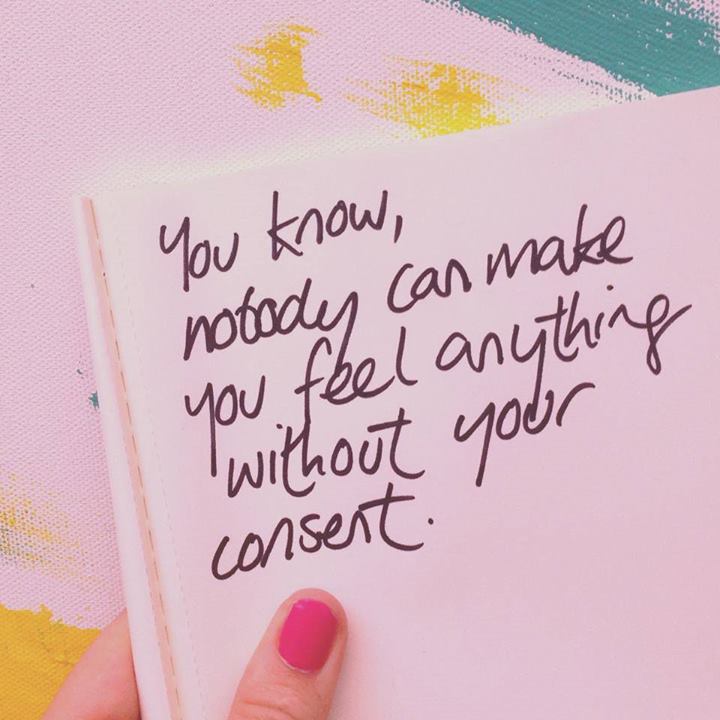 You know,
nobody can make
you feel anything
without your
consent.